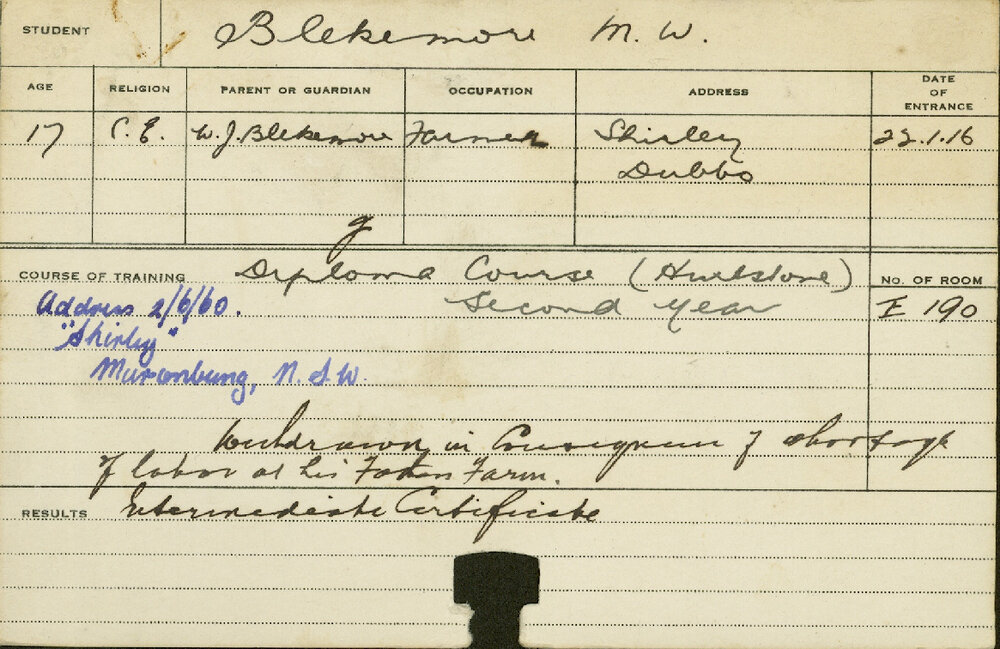 STUDENT Blekemore M. W.
AGE RELIGION PARENT OR GUARDIAN OCCUPATION ADDRESS DATE OF ENTRANCE
17 C. E. W. J. Blekemore Farmer Shirley 22.1.16
Dubbo
COURSE OF TRAINING Diploma Course (Hurlstone) No. OF ROOM
Second Year E 190
Address 2/6/60.
"Shirley"
Murrumbung, N.S.W.
Withdrawn in Consequence of shortage
of labor at his Fathers Farm.
RESULTS Intermediate Certificate